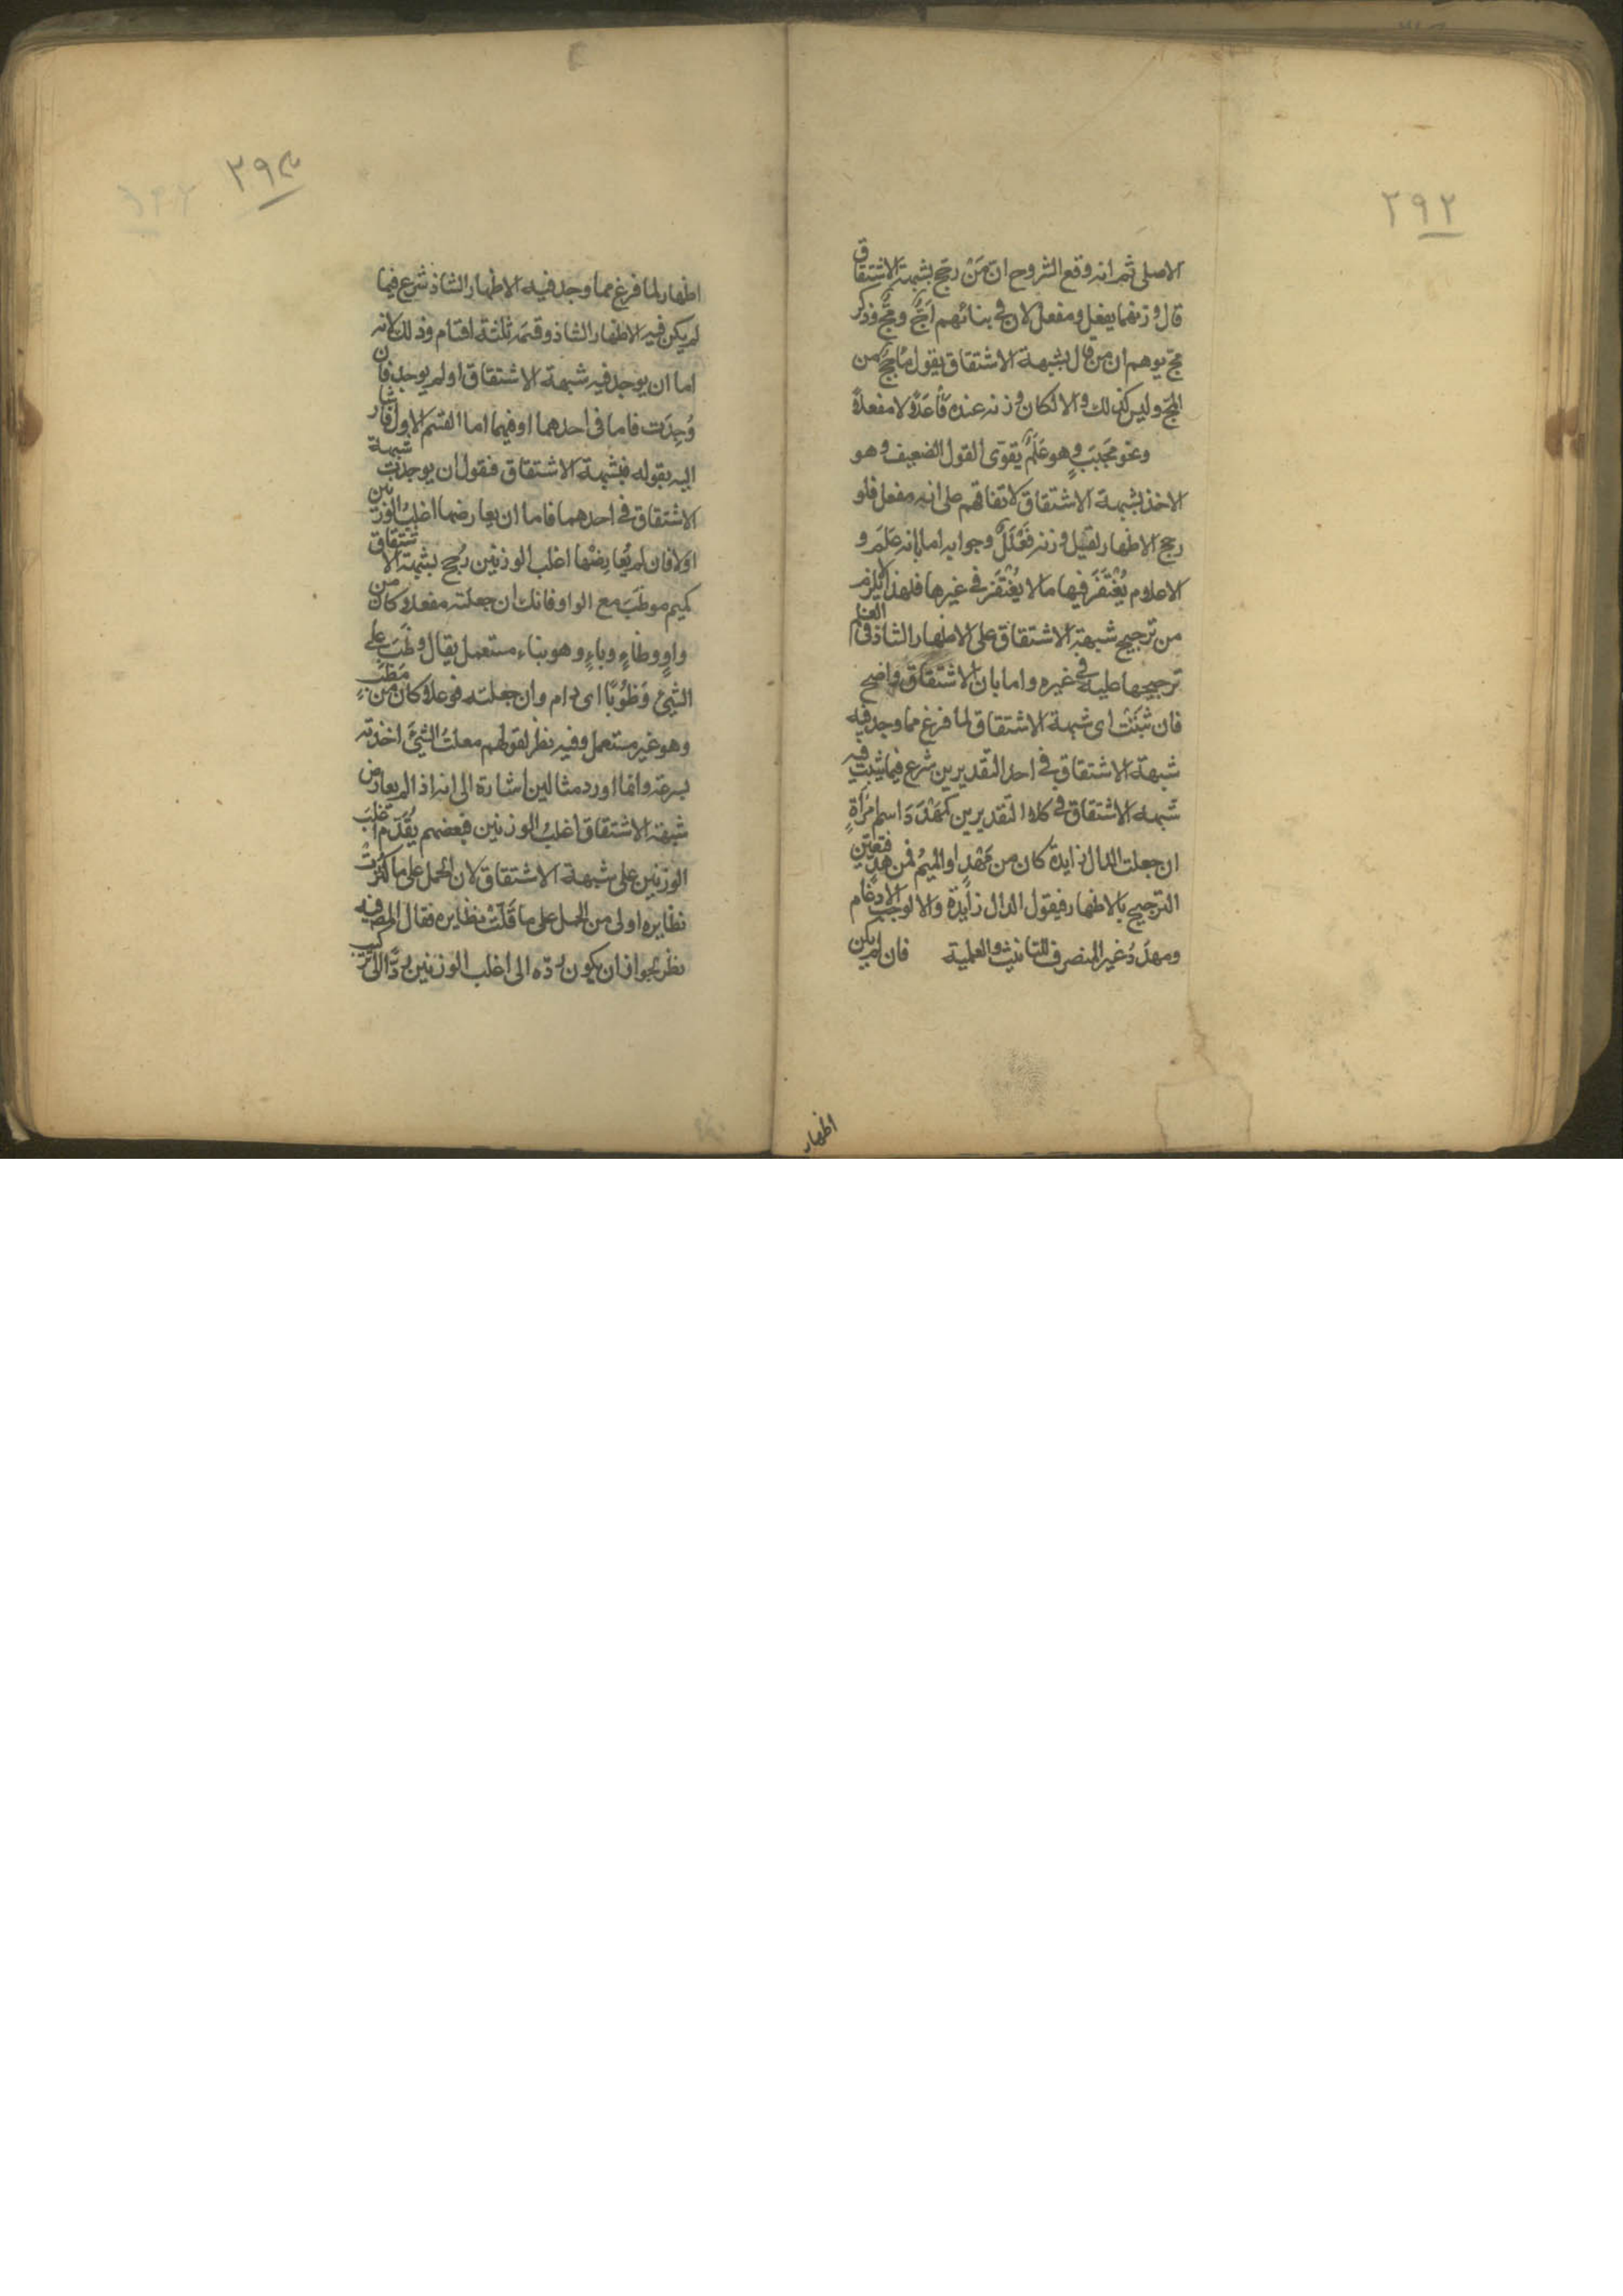 ٢٩٢
الاصلى ثم انه وقع الشروح ان مَنْ رجّح بشبهة الاشتقاق
قال وزنهما يفعل ومفعل لان فى بنائهم اجّج ومجّ وذكر
مجّ يوهم ان من قال بشبهة الاشتقاق يقول مأجج من
المجّ وليس كذلك والا لكان وزنه عنده فَأْعَلًا لا مفعلًا
ونحو مَحْبَبٍ وهو عَلَمٌ يقوّى القول الضعيف وهو
الاخذ بشبهة الاشتقاق لاتفاقهم على انه مفعل فلو
رجح الاظهار لقيل وزنه فَعْلَلٌ وجوابه اما بانه علم و
الاعلام يُغْتَفَر فيها ما لا يُغْتَفَر فى غيرها فلهذا لا يلزم
من ترجيح شبهة الاشتقاق على الاظهار الشاذ فى العلم
ترجيحها عليه فى غيره واما بان الاشتقاق واضح
فان ثبتت اى شبهة الاشتقاق لما فرغ مما وجد فيه
شبهة الاشتقاق فى احد التقديرين شرع فيما يثبت فيه
شبهة الاشتقاق فى كلا التقديرين كمَهْدَدَ اسم امرأةٍ
ان جعلت الدال زايدة كان من مَهْدٍ او الميم فمن هدّ فتعيّن
الترجيح بالاظهار فيقول الدال زايدة والا لوجب الادغام
ومهدَدُ غير المنصرف للتانيث والعلمية فان لم يكن
اظهار
٢٩٣
اظهار لما فرغ مما وجد فيه الاظهار الشاذ شرع فيما
لم يكن فيه الاظهار الشاذ وقسّمه ثلثة اقسام وذلك لانه
اما ان يوجد فيه شبهة الاشتقاق او لم يوجد فان
وُجِدَت فاما فى احدهما او فيهما اما القسم الاول فاشار
اليه بقوله فبشبهة الاشتقاق فنقول ان يوجدت شبهة
الاشتقاق فى احدهما فاما ان يعارضها اغلب الوزنين
اولا فان لم يُعارِضْها اغلب الوزنين رُجّح بشبهة الاشتقاق
كميم موظَبَ مع الواو فانك ان جعلته مفعلا وكان من
واوٍ وظاءٍ وباءٍ وهو بناء مستعمل يقال وظَبَ على
الشئ وُظُوبًا اى دام وان جعلته فوعلا وكان من مَظَبَ
وهو غير مستعمل وفيه نظر لقولهم معلتُ الشئ اخذته
بسرعة وانما اورد مثالين اشارة الى انه اذا لم يعارض
شبهة الاشتقاق اغلب الوزنين فبعضهم يُقَدّم اغلبَ
الوزنين على شبهة الاشتقاق لان الحمل على ما كَثُرَتْ
نظايره اولى من الحمل على ما قَلّتْ نظايره فقال المصـ فيه
نظر لجواز ان يكون ردّه الى اغلب الوزنين ردًّا الى تركيب